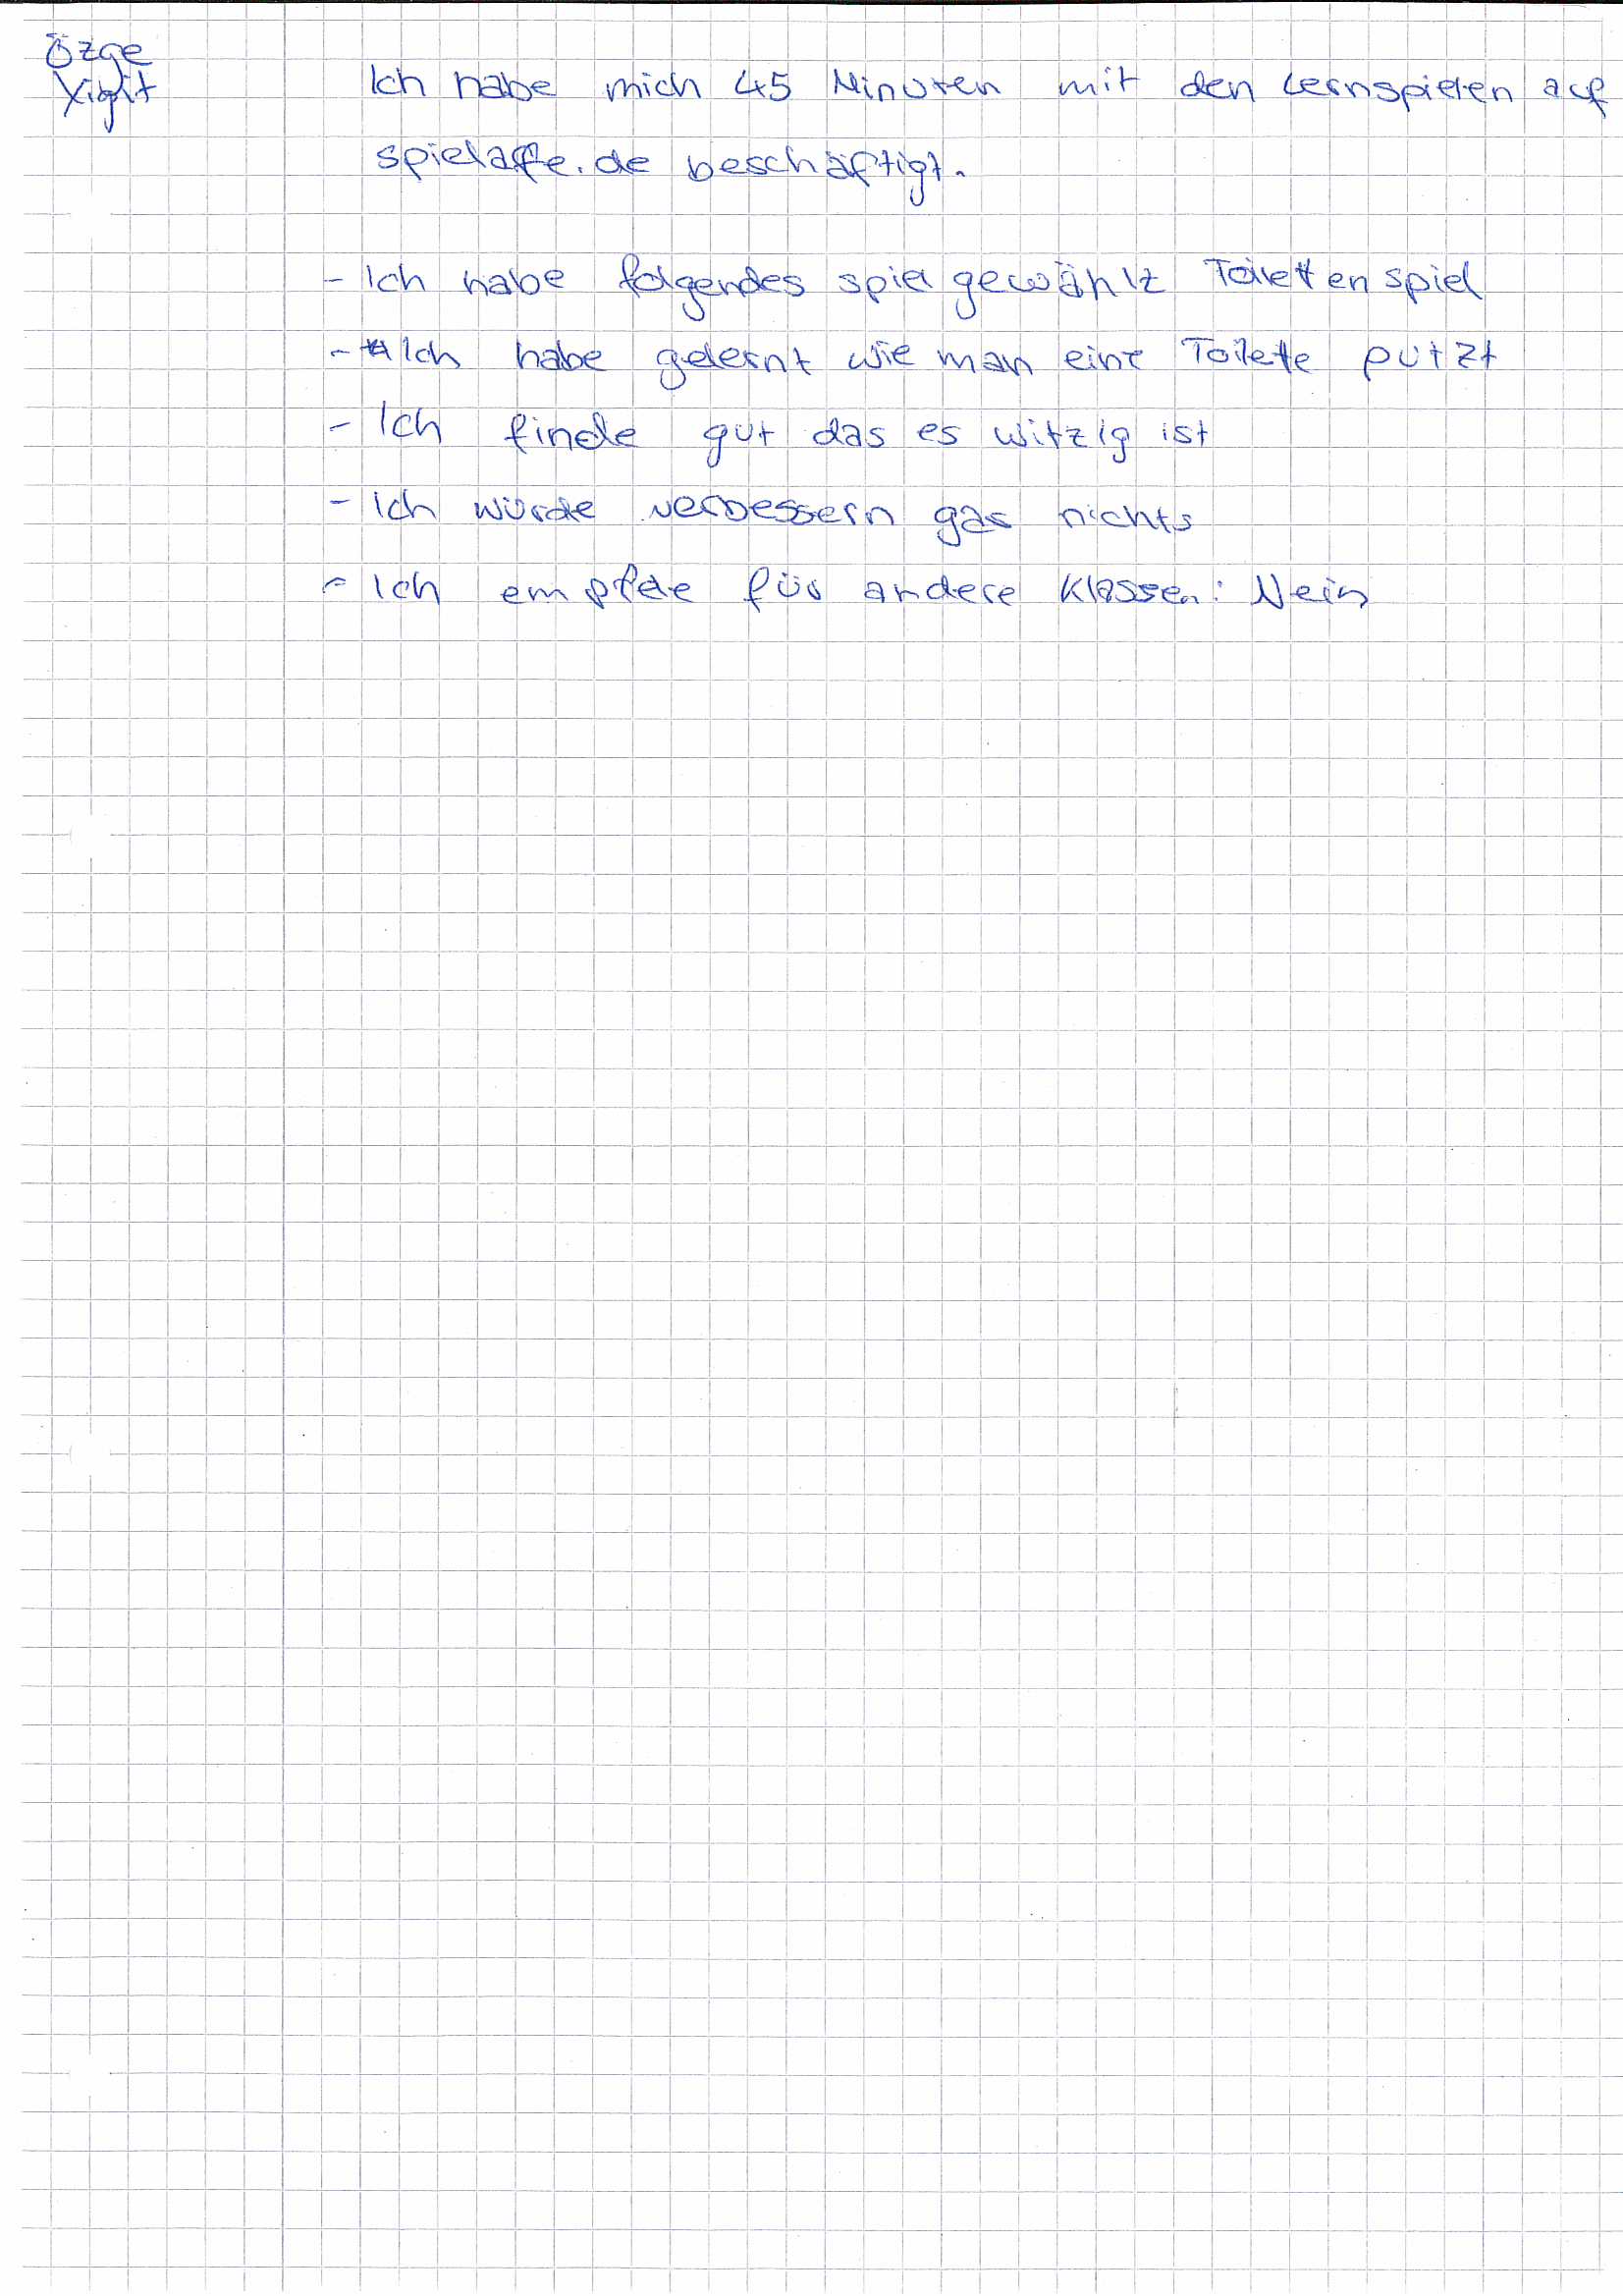 Özge
Yigit
Ich habe mich 45 Minuten mit den Lernspielen auf
spielaffe.de beschäftigt.
- Ich habe folgendes spiel gewählz Toiletten spiel
- Ich habe gelernt wie man eine Toilette putzt
- Ich finde gut das es witzig ist
- Ich würde verbessern gar nichts
- Ich empfele für andere Klassen: Nein